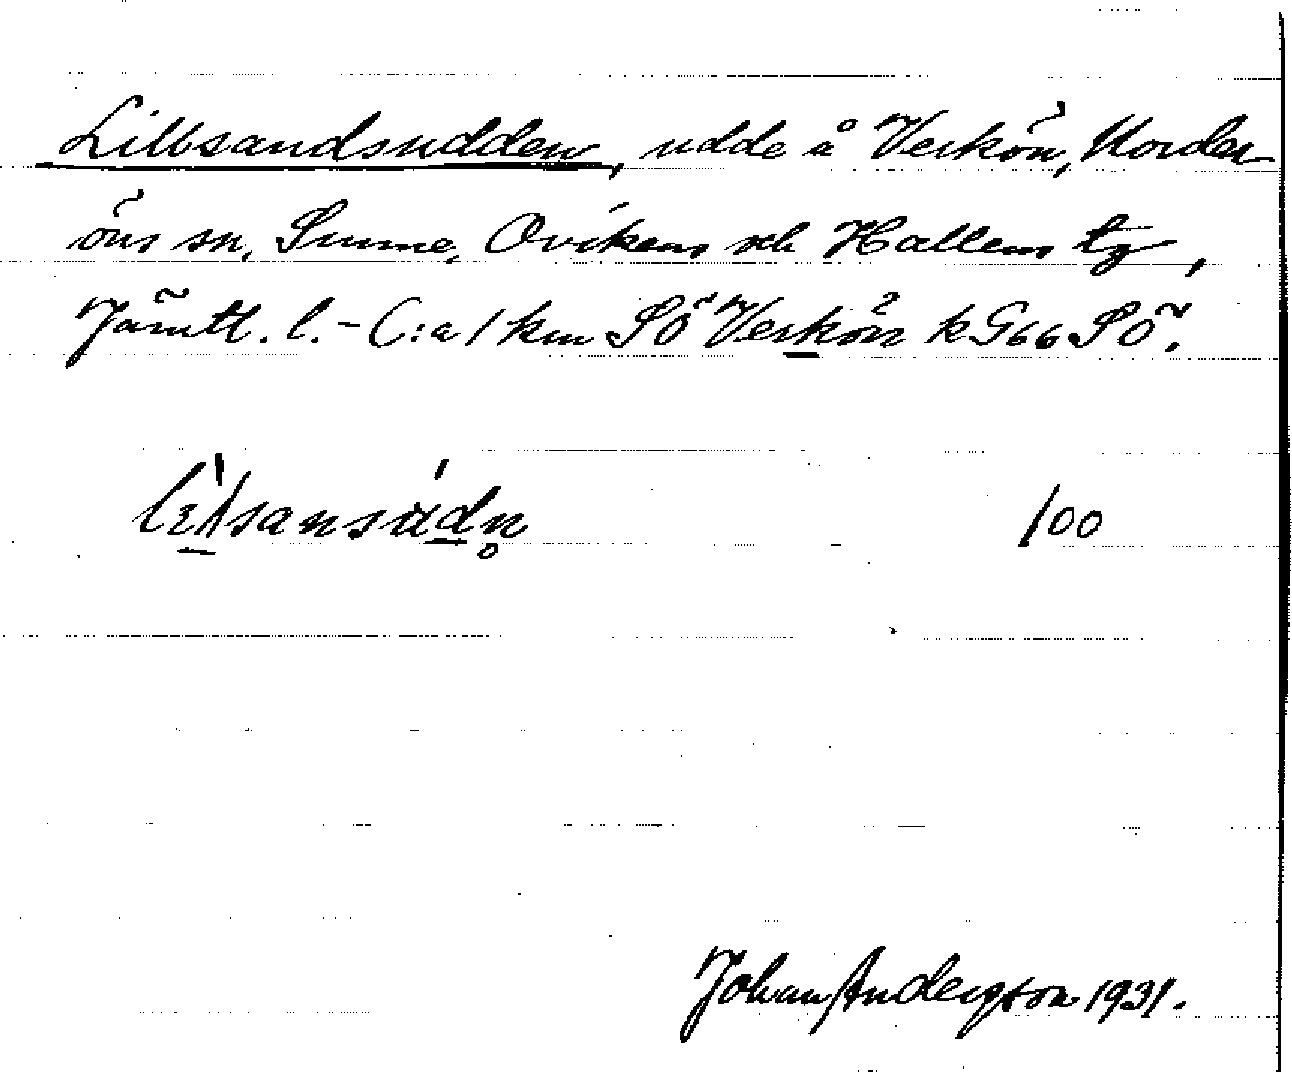 Lillsandsudden, udde å Verkön, Norder-
öns sn, Sunne, Ovikens och Hallens tg,
Jämtl. l. - C:a 1 km SÖ Verkön k G66 SÖ.
100
Johan Andersson 1931.